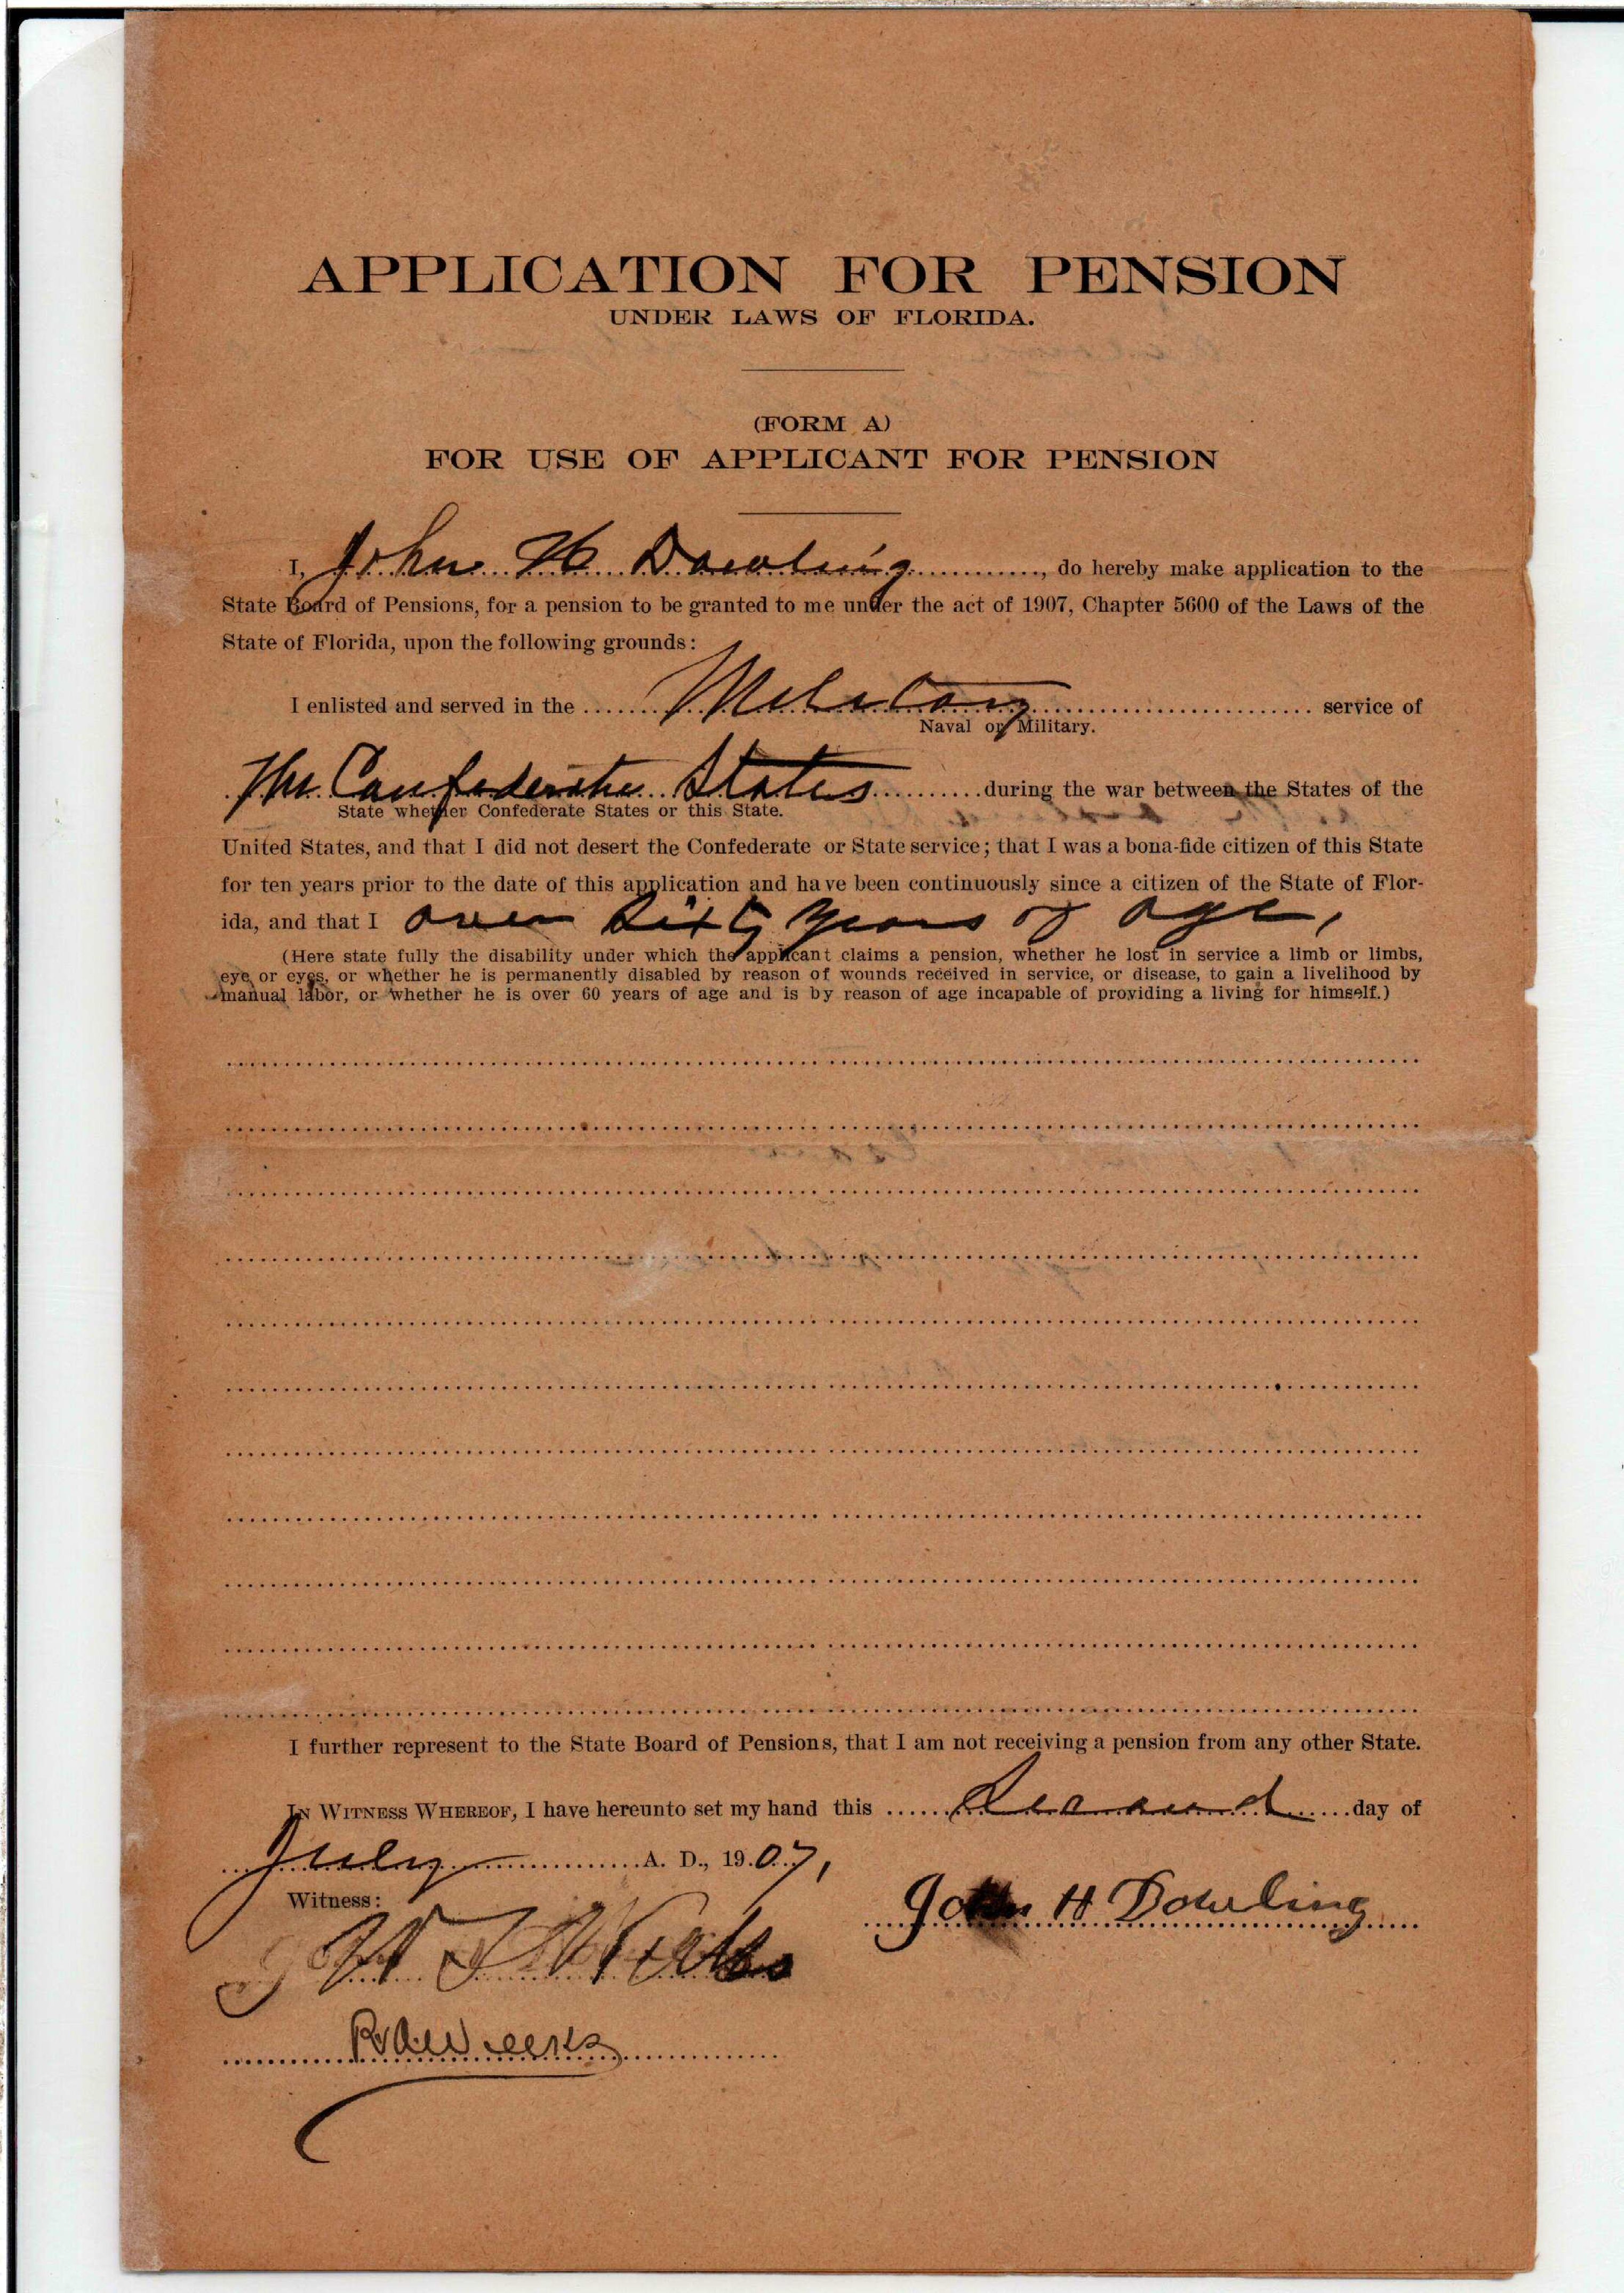 APPLICATION FOR PENSION
UNDER LAWS OF FLORIDA.
(FORM A)
FOR USE OF APPLICANT FOR PENSION
I, John H Dowling, do hereby make application to the
State Board of Pensions, for a pension to be granted to me under the act of 1907, Chapter 5600 of the Laws of the
State of Florida, upon the following grounds:
I enlisted and served in the Military service of
Naval or Military.
The Confederate States during the war between the States of the
State whether Confederate States or this State.
United States, and that I did not desert the Confederate or State service; that I was a bona-fide citizen of this State
for ten years prior to the date of this application and have been continuously since a citizen of the State of Flor-
ida, and that I over sixty years of age,
(Here state fully the disability under which the applicant claims a pension, whether he lost in service a limb or limbs,
eye or eyes, or whether he is permanently disabled by reason of wounds received in service, or disease, to gain a livelihood by
manual labor, or whether he is over 60 years of age and is by reason of age incapable of providing a living for himself.)
I further represent to the State Board of Pensions, that I am not receiving a pension from any other State.
IN WITNESS WHEREOF, I have hereunto set my hand this Second day of
July A. D., 1907,
Witness:
John H Dowling
Weeks